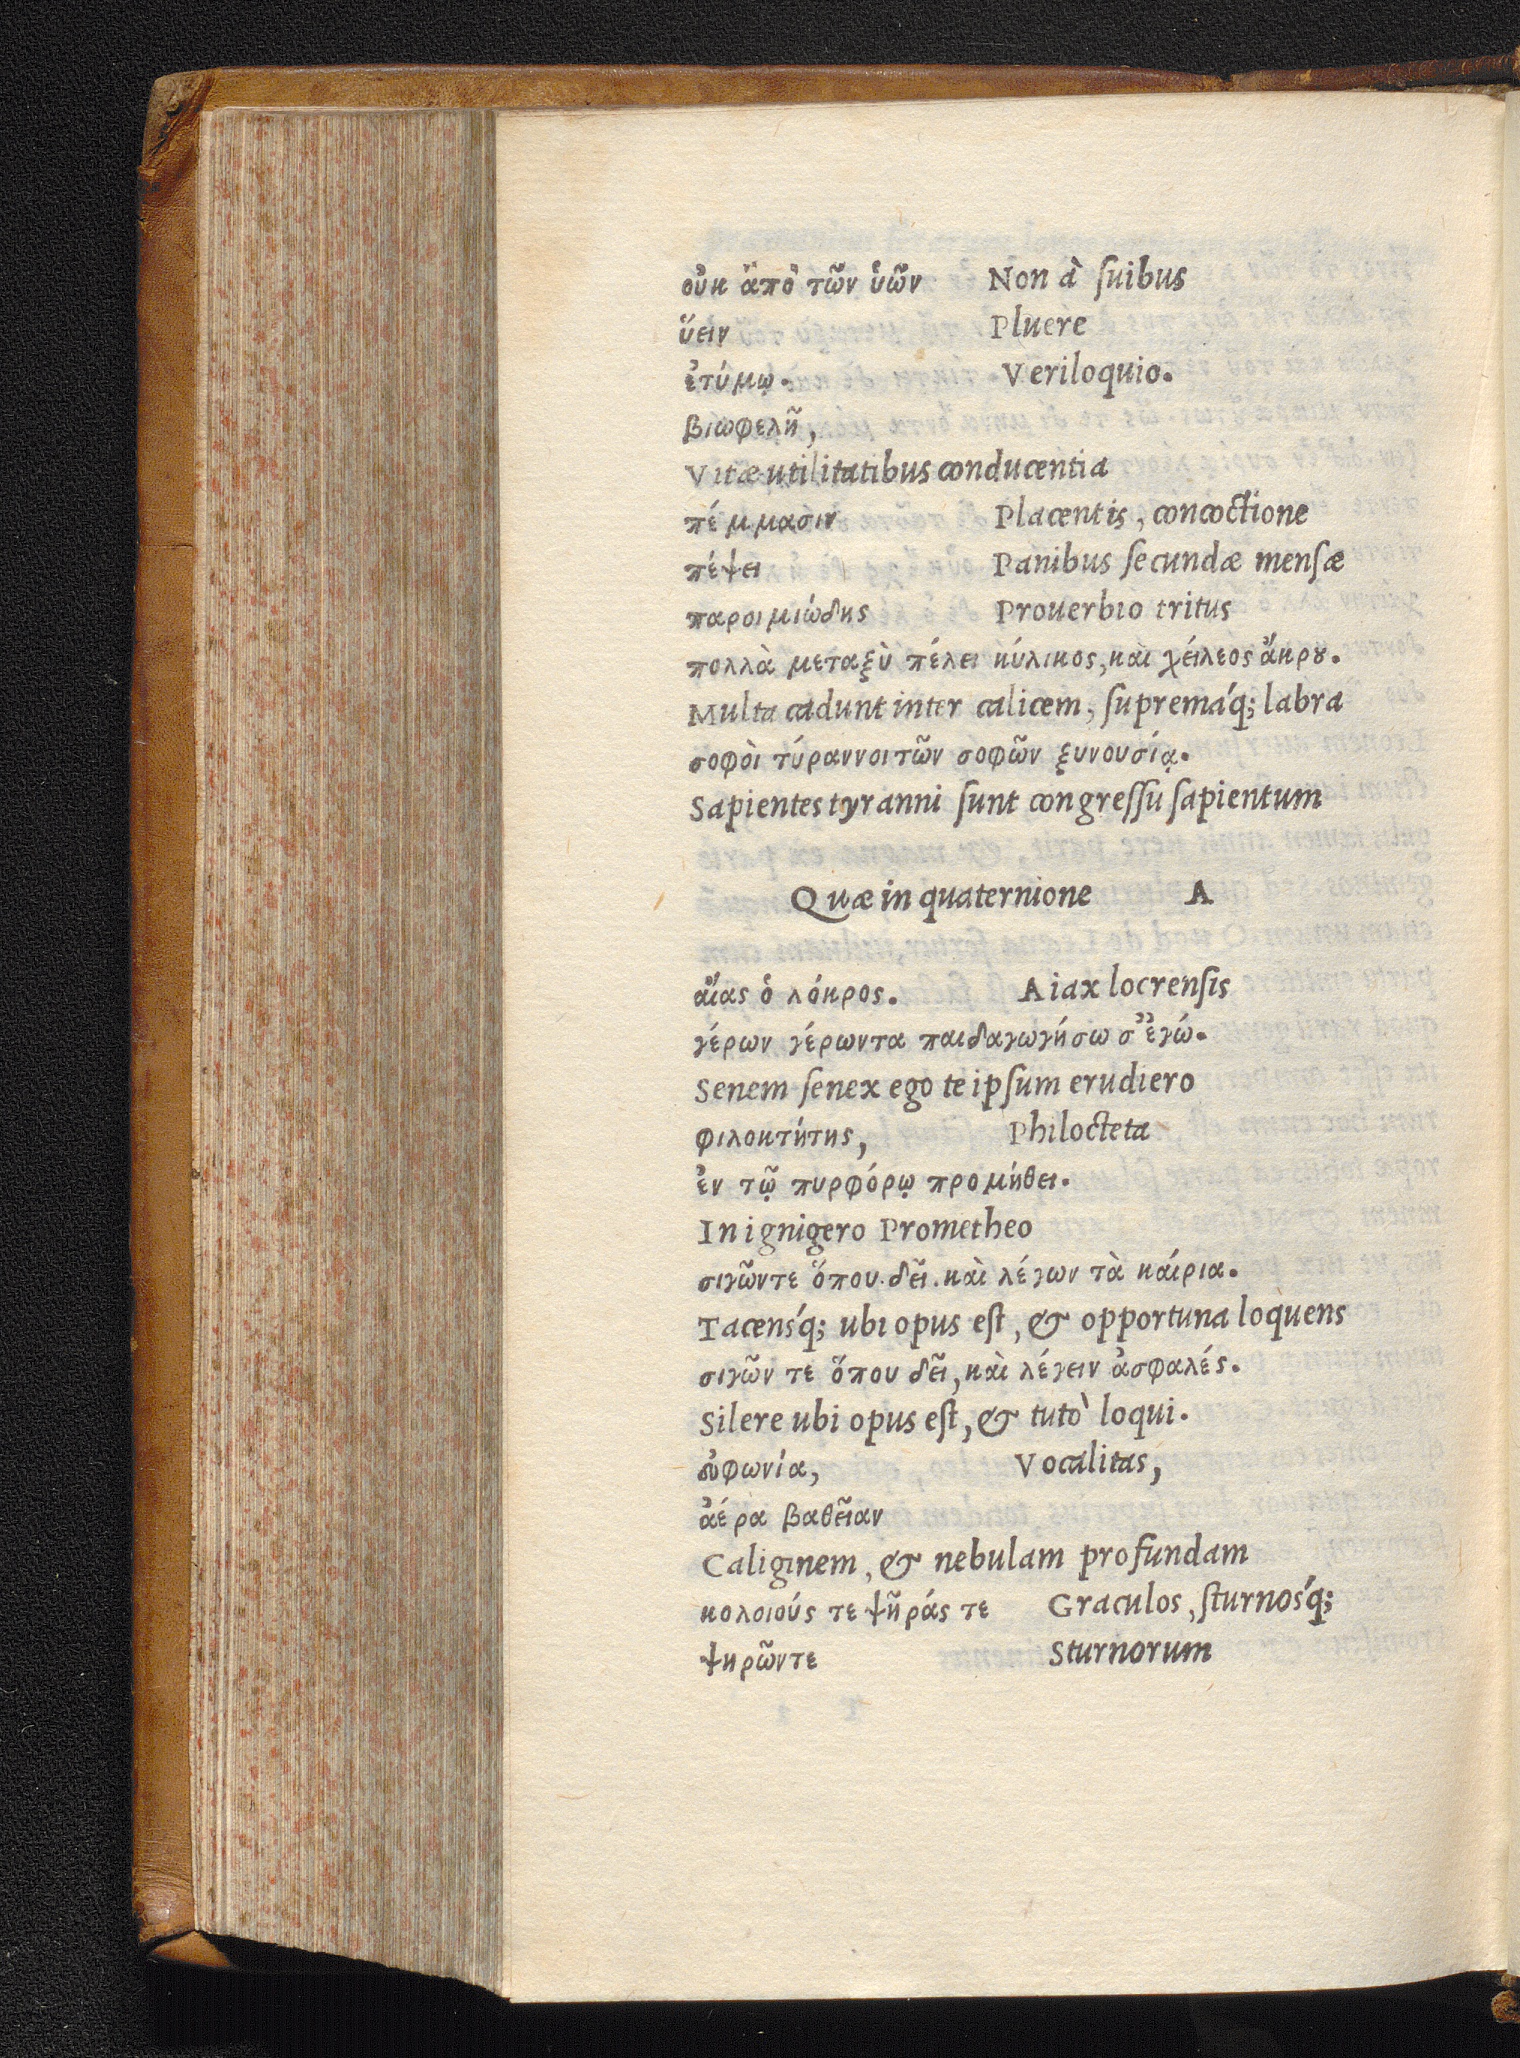 οὐκ ἀπὸ τῶν ὑῶν Non à ſuibus
ὕειν Pluere
ἐτύμῳ. Veriloquio.
βιωφελῆ,
Vitæ utilitatibus conducentia
πέμμασιν Placentis, concoctione
πέψει Panibus ſecundæ menſæ
παροιμιώδης Prouerbio tritus
πολλὰ μεταξὺ πέλει κύλικος, καὶ χείλεος ἄκρου.
Multa cadunt inter calicem, ſupremáq; labra
σοφοὶ τύραννοι τῶν σοφῶν ξυνουσίᾳ.
Sapientes tyranni ſunt congreſſu ſapientum
Quæ in quaternione A
αἴας ὁ λόκρος. Aiax locrenſis
γέρων γέρωντα παιδαγωγήσω σ' ἐγώ.
Senem ſenex ego te ipſum erudiero
φιλοκτήτης, Philocteta
ἐν τῷ πυρφόρῳ προμήθει.
In ignigero Prometheo
σιγῶντε ὅπου δεῖ. καὶ λέγων τὰ καίρια.
Tacensq́; ubi opus eſt, & opportuna loquens
σιγῶν τε ὅπου δεῖ, καὶ λέγειν ἀσφαλές.
Silere ubi opus eſt, & tutò loqui.
εὐφωνία, Vocalitas,
ἀέρα βαθεῖαν
Caliginem, & nebulam profundam
κολοιούς τε ψῆράς τε Graculos, ſturnosq́;
ψηρῶντε Sturnorum